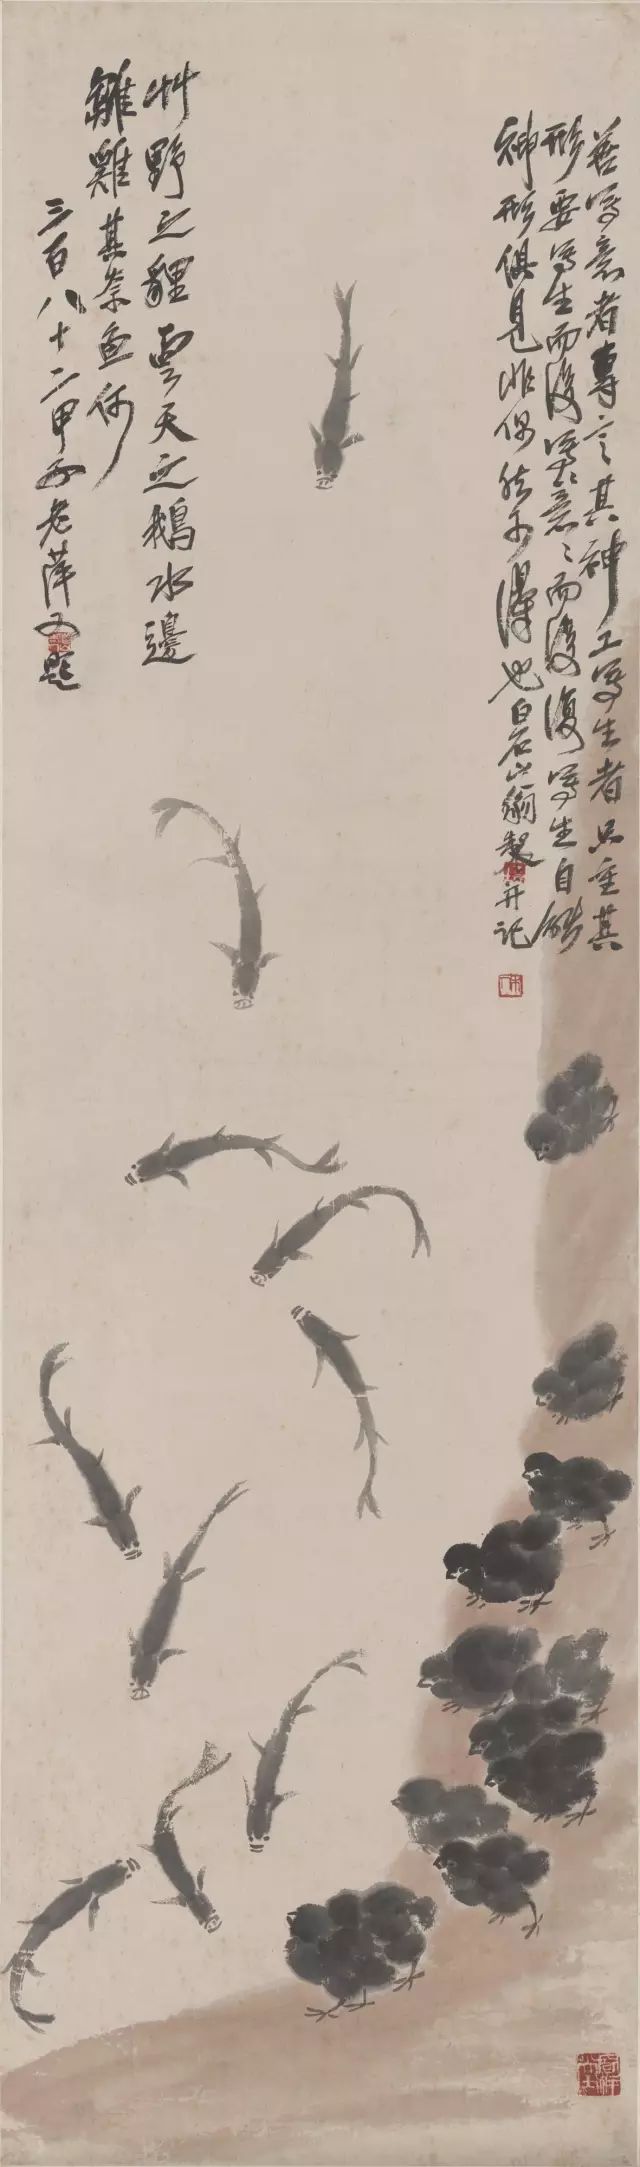 善写意者專言其神工写生者只重其
形要写生而後写意写意而後復写生自能
神形俱見非偶然可得也白石山翁製并记
艸野之貍雲天之鵝水邊
雛雞其奈魚何
三百八十二甲子老萍又題